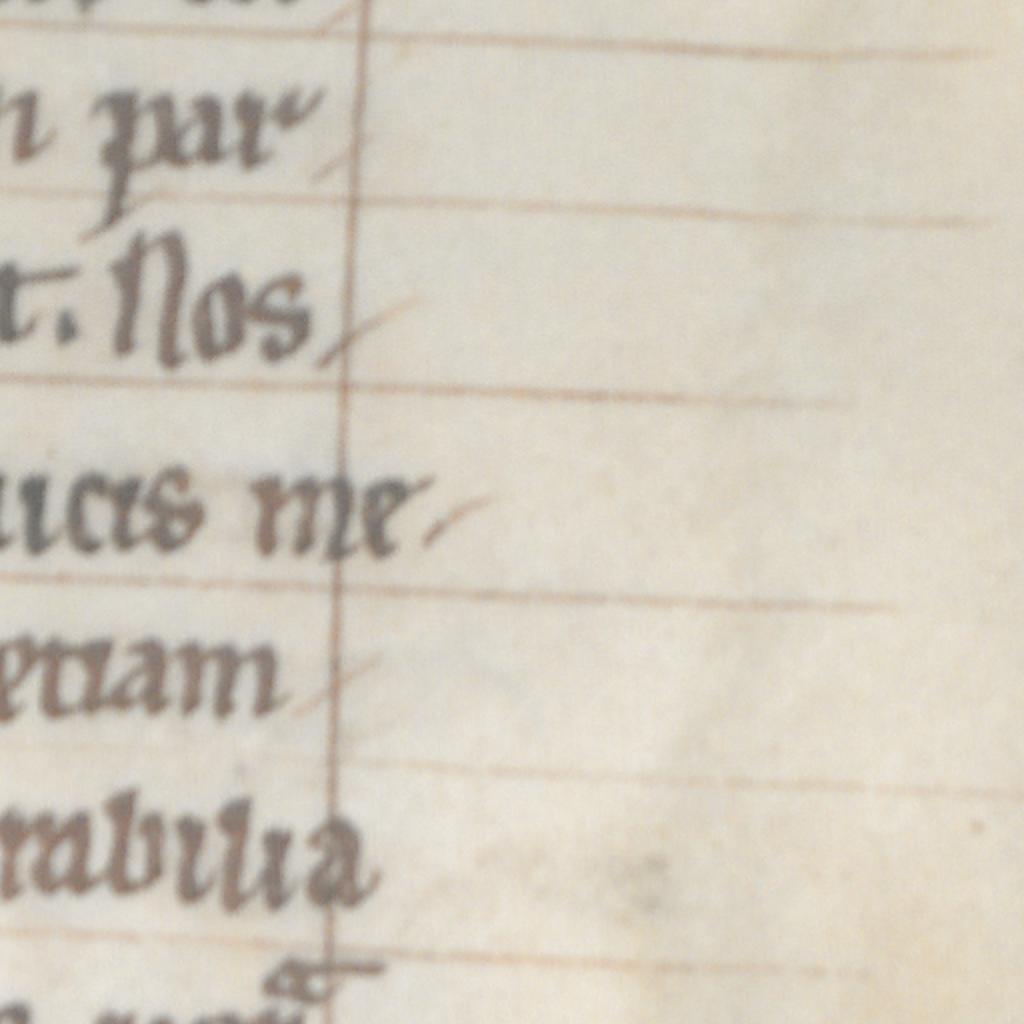 n par
t. Nos
ucis me
etiam
rabilia